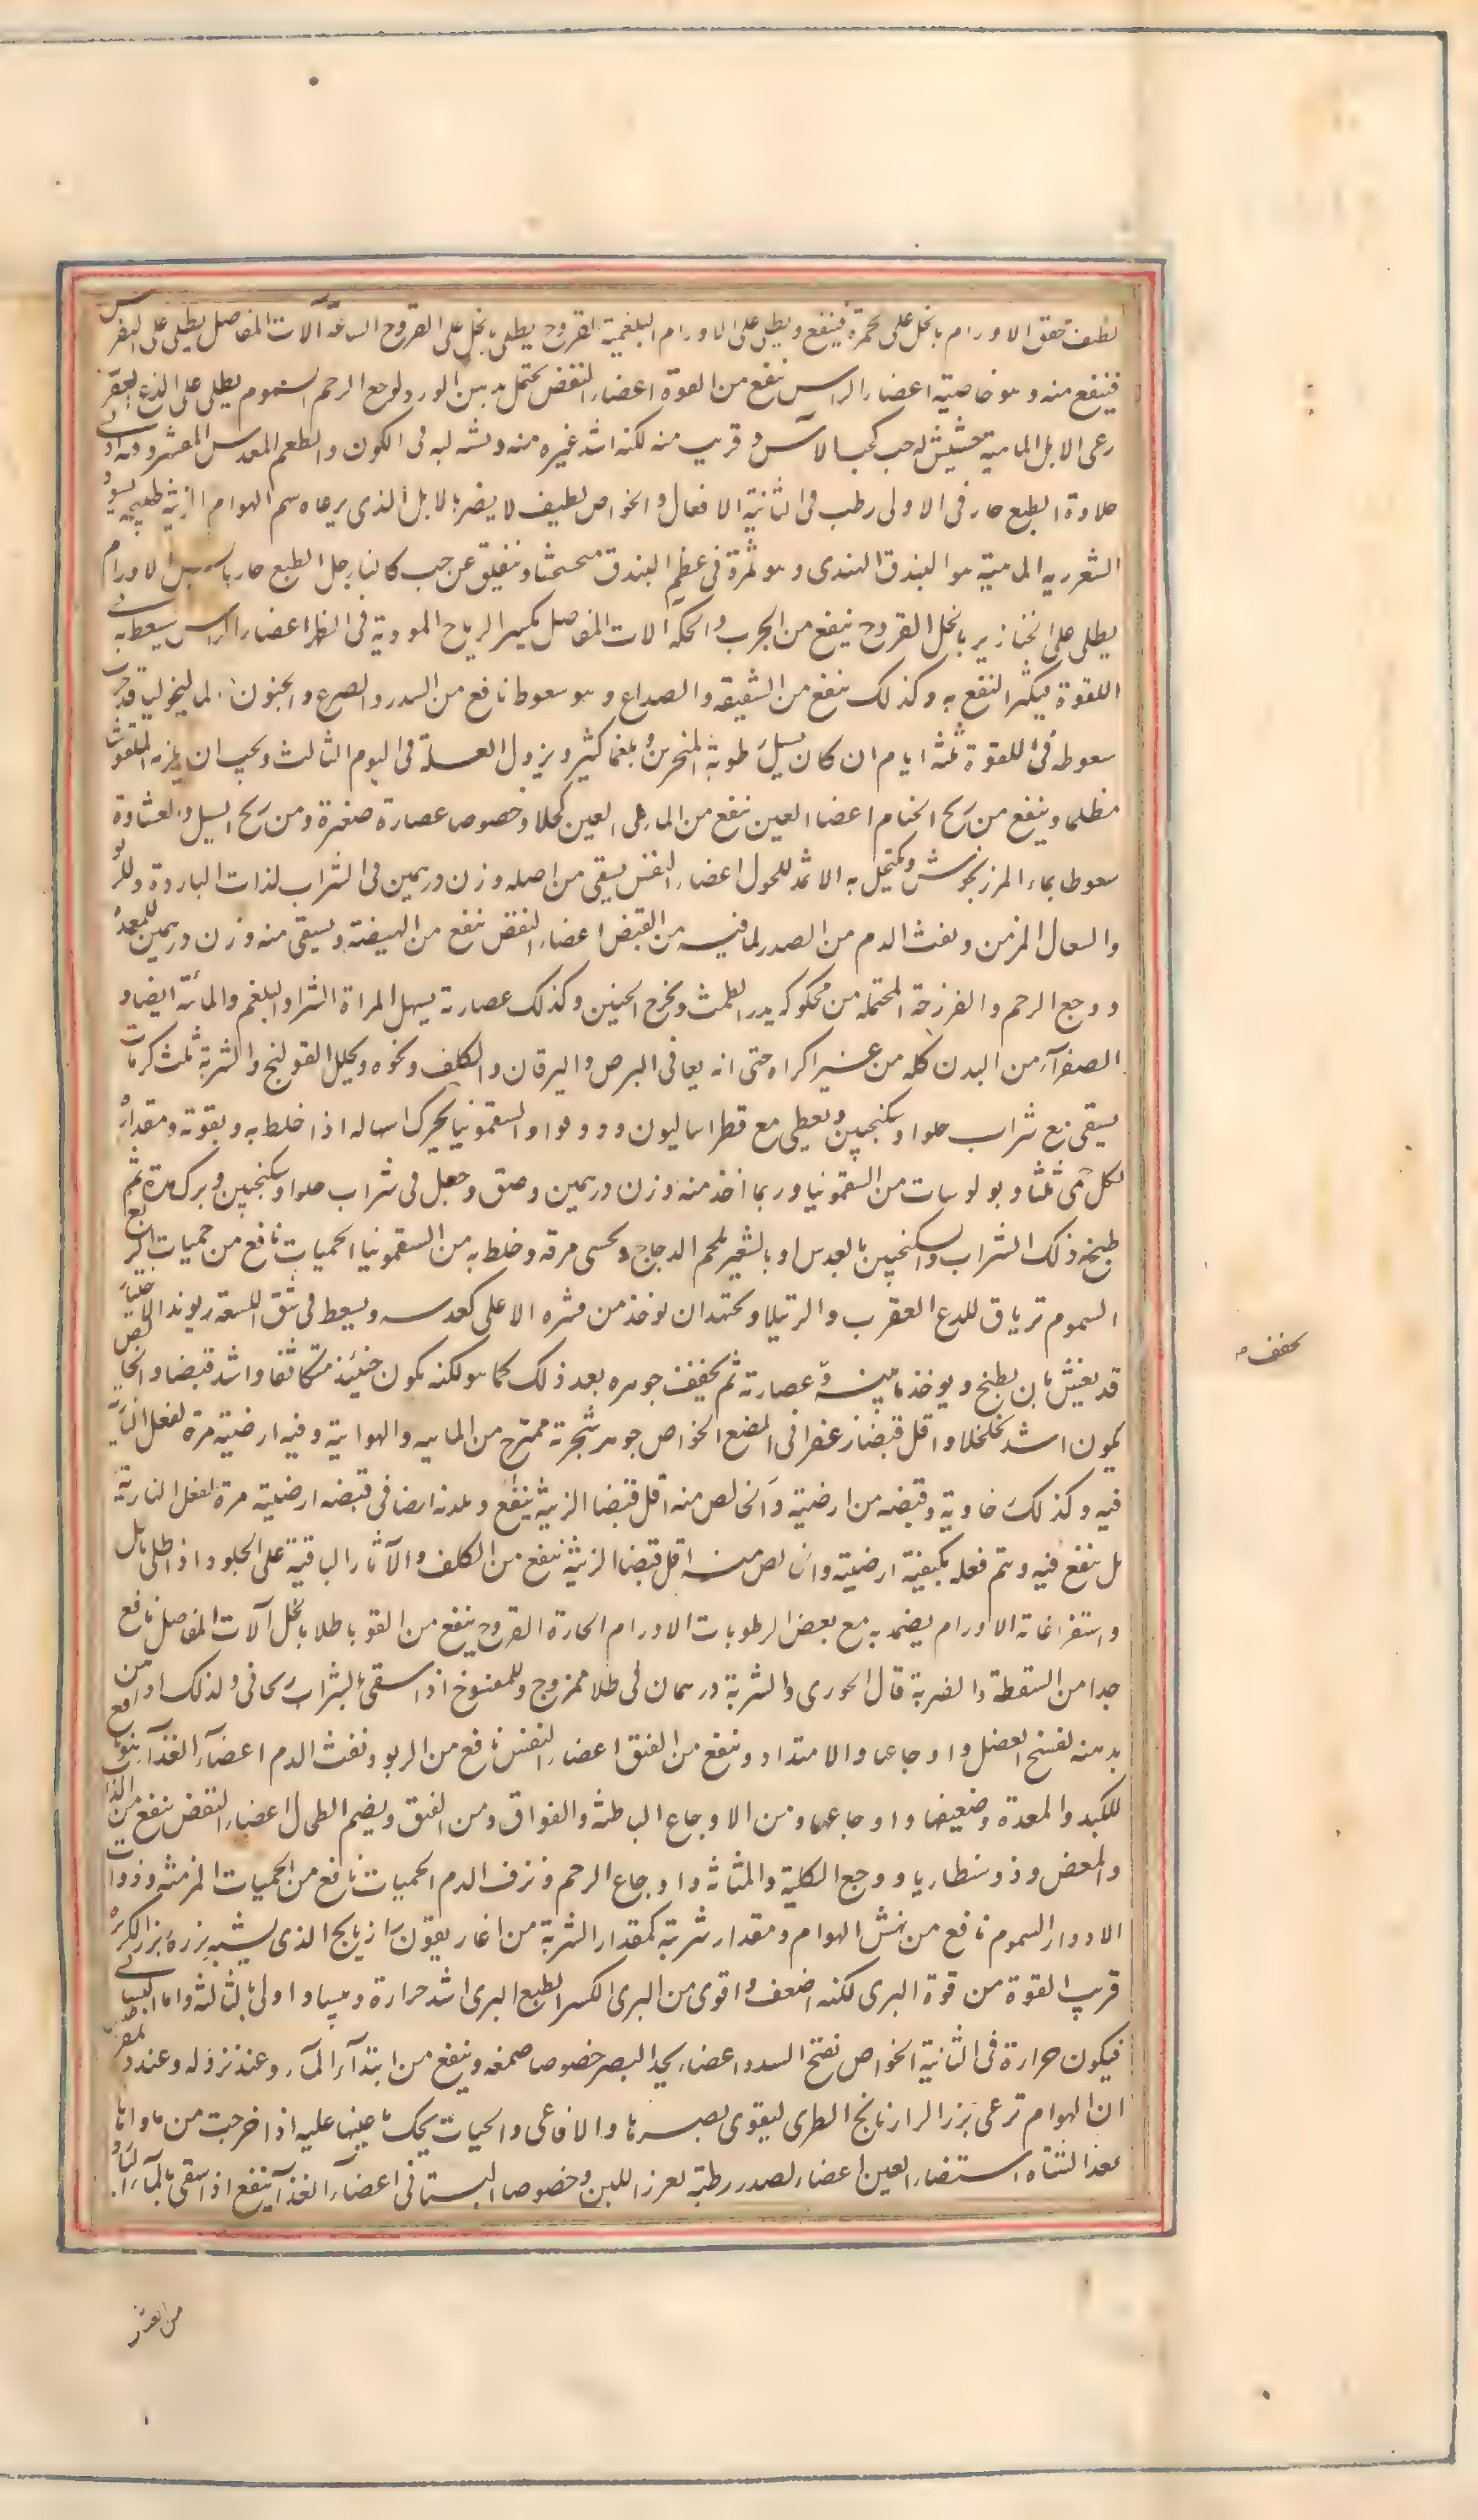 لطيف محقق الاورام بالخل على الحمرة فينفع ويطلى على الاورام البلغمية القروح يطلى بالخل على القروح الساعية آلات المفاصل يطلى على النقرس
فينفع منه وهو خاصيته اعضاء الراس ينفع من القوة اعضاء النفض يحتمل بدهن الورد لوجع الرحم السموم يطلى على لذع العقرب
رعى الابل الماهية حشيش له حب كحب الآس وقريب منه لكنه اشد غبرة منه ونشبه لبه فى اللون والطعم العدس المقشر وفيه ادنى
حلاوة الطبع حار فى الاولى رطب فى الثانية الافعال والخواص لطيف لا يضر بالابل الذى يرعاه سم الهوام الزينة طبيخه يسود
الشعر ريه الماهية هو البندق الهندى وهو ثمرة فى عظم البندق متخشخشا وينفلق عن حب كالنارجيل الطبع حار يابس الاورام
يطلى على الخنازير بالخل القروح ينفع من الجرب والحكة آلات المفاصل يكسر الرياح الموذية فى الظهر اعضاء الراس يسعط به فى
اللقوة فيكثر النفع به وكذلك ينفع من الشقيقة والصداع وهو سعوطا نافع من السدر والصرع والجنون الماليخوليا قد جرب
سعوطه فى اللقوة ثلثة ايام ان كان يسيل رطوبة المنخرين وبلغما كثير ويزول العلة فى اليوم الثالث ويجب ان يلزم الملقو بيتا
مظلما وينفع من ريح الخشام اعضاء العين ينفع من الماء فى العين كحلا وخصوصا عصارة صغيرة ومن ريح السبل والغشاوة
سعوطا بماء المرزنجوش ويكتحل به الاثمد للحول اعضاء النفس يسقى من اصله وزن درهمين فى الشراب لذات الباردة وللربو
والسعال المزمن ونفث الدم من الصدر لما فيه من القبض اعضاء النفض ينفع من الهيضة ويسقى منه وزن درهمين للمعدة
ووجع الرحم والفرزجة المحتملة من محكوكه يدر الطمث ويخرج الجنين وكذلك عصارته يسهل المرة الشراء والبلغم والمائية ايضا و
الصفراء من البدن كله من غير اكراه حتى انه يعافى البرص واليرقان والكلف ونحوه ويحلل القولنج والشربة ثلث كرمات
يسقى مع شراب حلو او سكنجبين ويعطى مع قطراساليون ودوقوا والسقمونيا يحرك اسهاله اذا خلط به وبقوته ومقداره
لكل منى ثلثا وبولوسات من السقمونيا وربما اخذ منه وزن درهمين ودق وجعل فى شراب حلو او سكنجبين ويرك مدة ثم
طبخ ذلك الشراب والسكنجبين بالعدس او بالشعير بلحم الدجاج ويحسى مرقه وخلط به من السقمونيا الحميات نافع من حميات الربع
السموم ترياق للدغ العقرب والرتيلا ويجتهد ان يوخذ من قشره الاعلى كعدسه ويسعط فى شق اللسعة ريوند الاختيار
قد يغش بان يطبخ ويوخذ مائيته وعصارته ثم يجفف جوهره بعد ذلك كما هو لكنه يكون حينئذ متكاثفا واشد قبضا والخالص
يكون اشد تخلخلا واقل قبضا زعفرانى المضغ الخواص جوهر شجرته ممتزج من المائية والهوائية وفيه ارضيته مرة لفعل النارية
فيه وكذلك خاوية وقبضه من ارضيته والخالص منه اقل قبضا الزينة ينفع ولدنه ايضا فى قبضه ارضيته مرة لفعل النارية
بل ينفع فيه ويتم فعله بكيفية ارضيته والخالص منه اقل قبضا الزينة ينفع من الكلف والآثار الباقية على الجلود اذا طلى بالخل
واستفراغاته الاورام يضمد به مع بعض الرطوبات الاورام الحارة القروح ينفع من القوبا طلاء بالخل آلات المفاصل نافع
جدا من السقطة والضربة قال الخوزى والشربة درهمان فى طلاء ممزوج وللمفسوخ اذا سقى بالشراب ريحانى ولذلك اذا من
بدهنه لفسخ العضل واوجاعها والامتداد وينفع من الفتق اعضاء النفس نافع من الربو ونفث الدم اعضاء الغذاء نافع
للكبد والمعدة وضعيفها واوجاعها ومن الاوجاع الباطنة والفواق ومن الفتق ويضمر الطحال اعضاء النفض ينفع من الذرب
والمغص وذوسنطاريا ووجع الكلية والمثانة واوجاع الرحم ونزف الدم الحميات نافع من الحميات المزمنة وذوات
الادوار السموم نافع من نهش الهوام ومقدار شربته كمقدار الشربة من اغاريقون رازيانج الذى يشبه بزره بزر الكرفس
قريب القوة من قوة البرى لكنه اضعف واقوى من البرى الكسر الطبع البرى اشد حرارة ويبسا واولى بالثالثة واما البستانى
فيكون حرارة فى الثانية الخواص تفتح السدد اعضاء يحد البصر خصوصا صمغه وينفع من ابتداء الماء وعند نزوله وعند ديمقراطيس
ان الهوام ترعى بزر الرازيانج الطرى ليقوى بصرها والافاعى والحيات يحك باعينها عليه اذا خرجت من ماواها
بعد الشتاء استضاء العين اعضاء الصدر رطبه يغزر اللبن وخصوصا البستانى اعضاء الغذاء ينفع اذا سقى بالماء البارد
يجفف
من الغثى